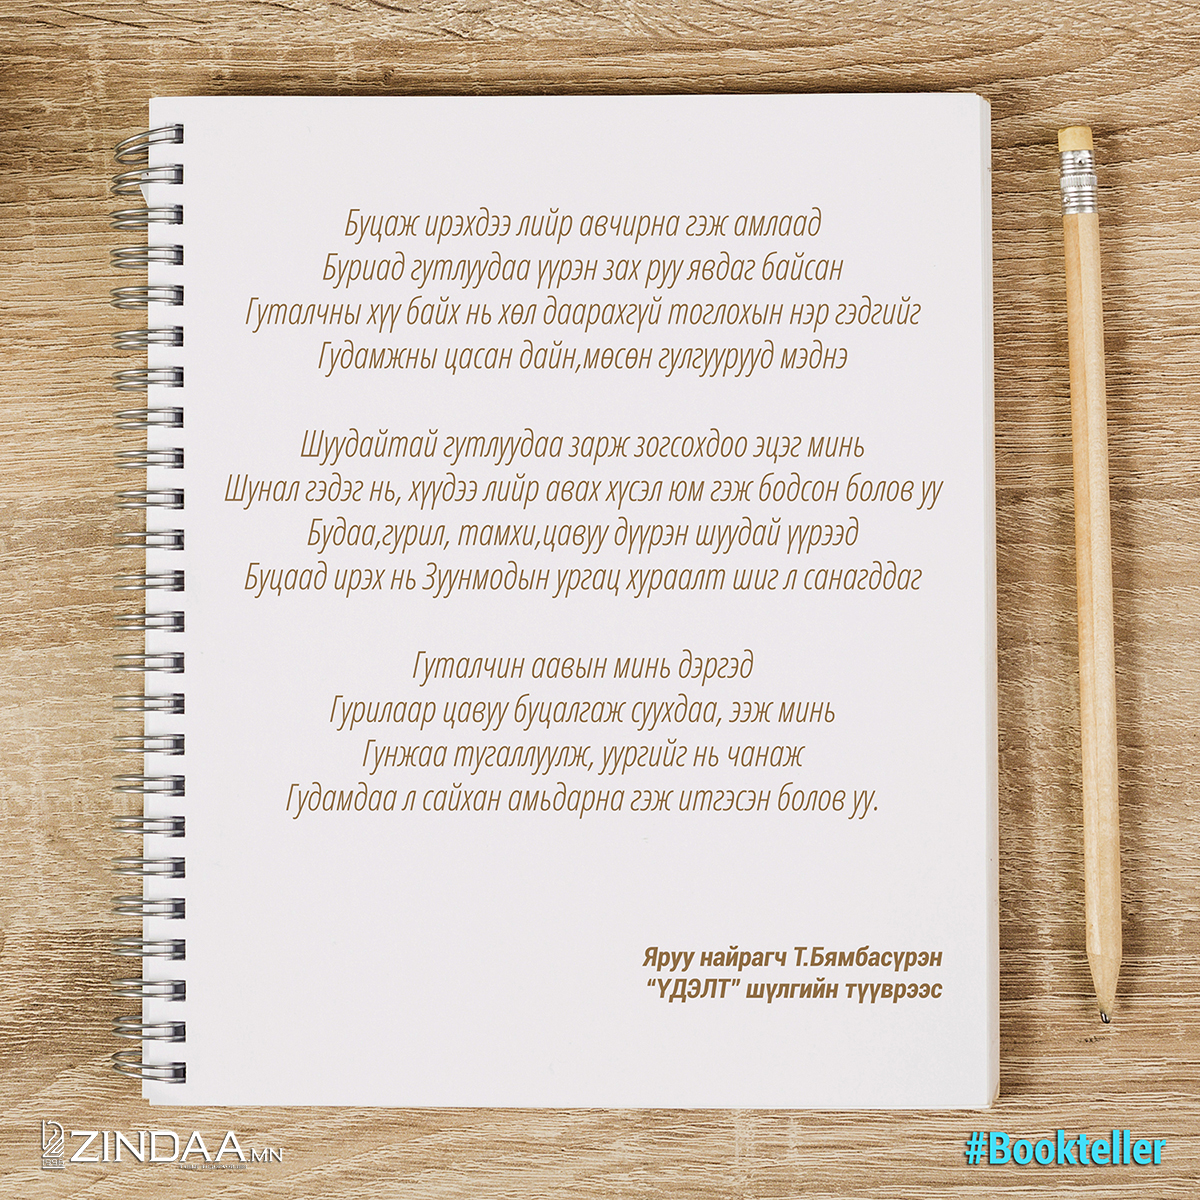 Буцаж ирэхдээ лийр авчирна гэж амлаад
Буриад гутлуудаа үүрэн зах руу явдаг байсан
Гуталчны хүү байх нь хөл даарахгүй тоглохын нэр гэдгийг
Гудамжны цасан дайн,мөсөн гулгуурууд мэднэ
Шуудайтай гутлуудаа зарж зогсохдоо эцэг минь
Шунал гэдэг нь, хүүдээ лийр авах хүсэл юм гэж бодсон болов уу
Будаа,гурил, тамхи,цавуу дүүрэн шуудай үүрээд
Буцаад ирэх нь Зуунмодын ургац хураалт шиг л санагддаг
Гуталчин аавын минь дэргэд
Гурилаар цавуу буцалгаж суухдаа, ээж минь
Гунжаа тугаллуулж, уургийг нь чанаж
Гудамдаа л сайхан амьдарна гэж итгэсэн болов уу.
Яруу найрагч Т.Бямбасүрэн
“ҮДЭЛТ” шүлгийн түүврээс
ZINDAA.MN
#Bookteller